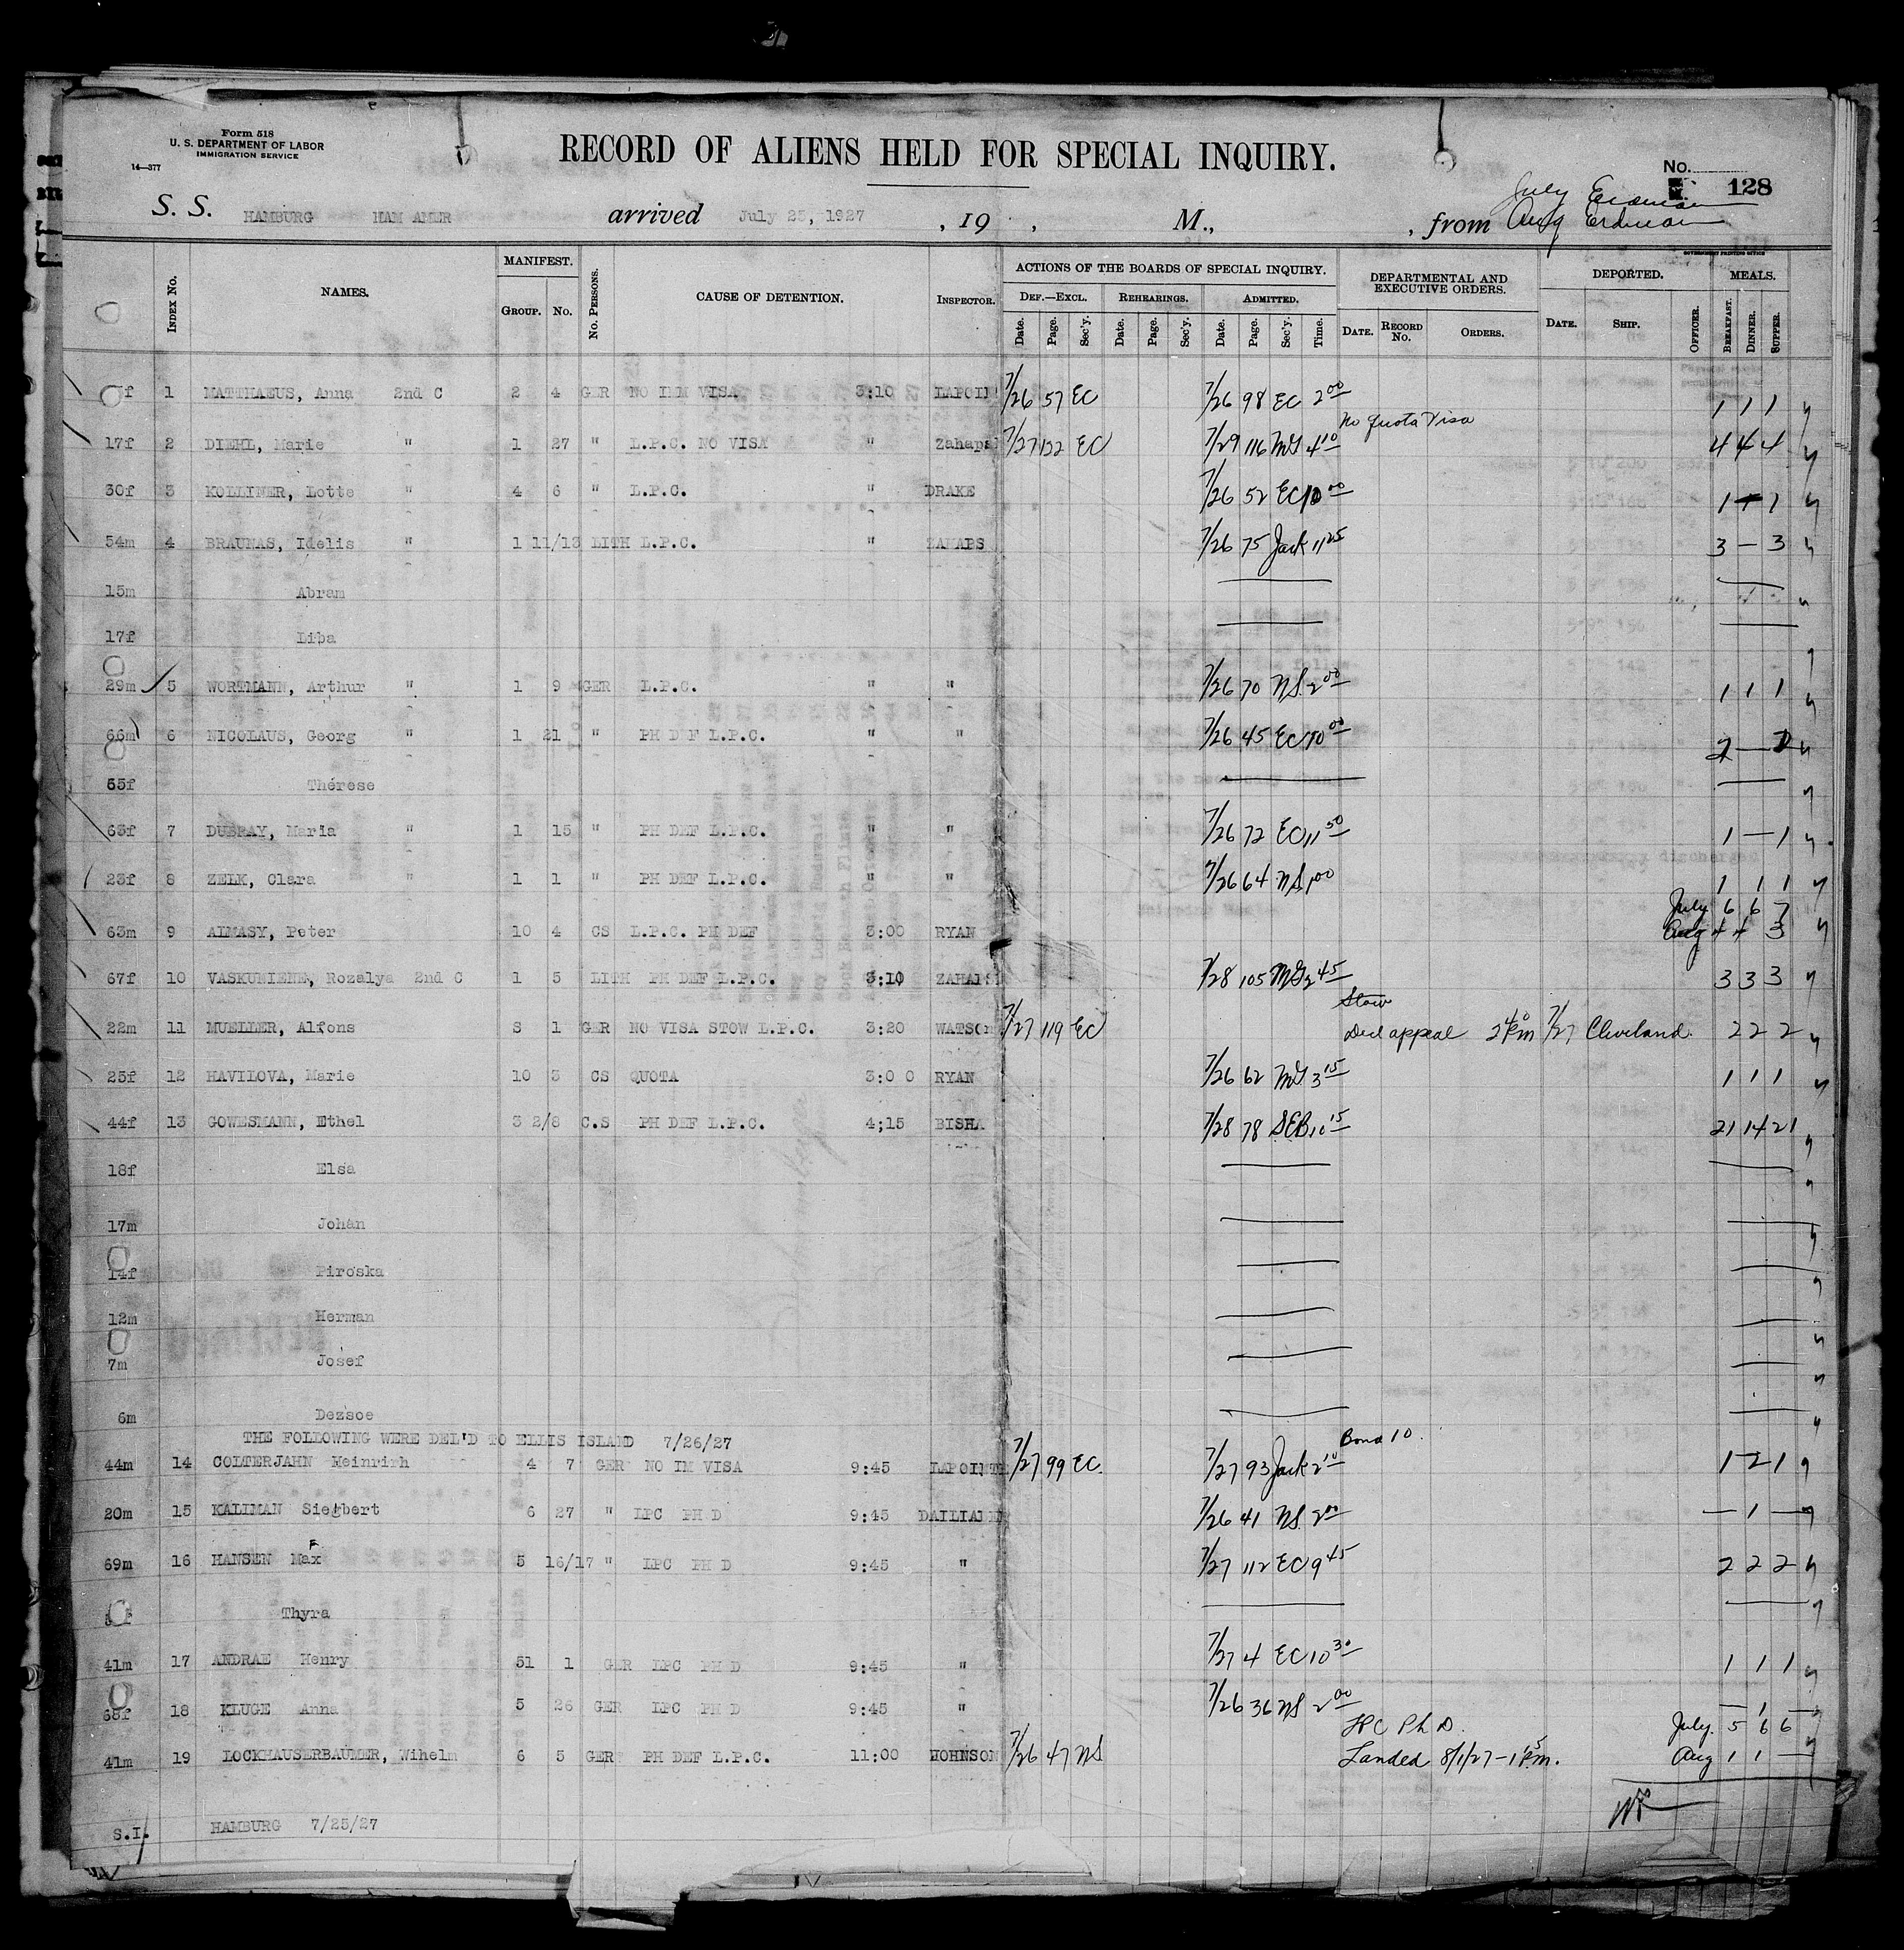 Form 518
U. S. DEPARTMENT OF LABOR
IMMIGRATION SERVICE
14—377
RECORD OF ALIENS HELD FOR SPECIAL INQUIRY.
No. 128
July Erdman
S. S. HAMBURG HAM AMER arrived July 25, 1927, 19 , M., , from Aug Erdman
GOVERNMENT PRINTING OFFICE
Index No. NAMES. MANIFEST. Group. No. No. Persons. CAUSE OF DETENTION. Inspector. ACTIONS OF THE BOARDS OF SPECIAL INQUIRY. Def.—Excl. Date. Page. Sec'y. Rehearings. Date. Page. Sec'y. Admitted. Date. Page. Sec'y. Time. DEPARTMENTAL AND EXECUTIVE ORDERS. Date. Record No. Orders. DEPORTED. Date. Ship. Officer. MEALS. Breakfast. Dinner. Supper.
f 1 MATTHAEUS, Anna 2nd C 2 4 GER NO IMM VISA 3:10 LAPOIN 7/26 57 EC 7/26 98 EC 2 00 1 1 1
No Quota Visa
17f 2 DIEHL, Marie " 1 27 " L.P.C. NO VISA " Zahaps 7/27 122 EC 7/29 116 MG 4 10 4 4 4
30f 3 KOLLINER, Lotte " 4 6 " L.P.C. " DRAKE 7/26 52 EC 10 00 1 — 1
54m 4 BRAUNAS, Idelis " 1 11/13 LITH L.P.C. " ZAHAPS 7/26 75 Jack 11 25 3 — 3
15m Abram
17f Liba
29m 5 WORTMANN, Arthur " 1 9 GER L.P.C. " " 7/26 70 NS 2 00 1 1 1
66m 6 NICOLAUS, Georg " 1 21 " PH DEF L.P.C. " " 7/26 45 EC 10 00 2 — 2
55f Therese
63f 7 DUBRAY, Maria " 1 15 " PH DEF L.P.C. " " 7/26 72 EC 11 50 1 — 1
23f 8 ZELK, Clara " 1 1 " PH DEF L.P.C. " " 7/26 64 NS 1 00 1 1 1
July 6 6 7
63m 9 ALMASY, Peter 10 4 CS L.P.C. PH DEF 3:00 RYAN Aug 4 4 3
67f 10 VASKUNIENE, Rozalya 2nd C 1 5 LITH PH DEF L.P.C. 3:10 ZAHAPS 7/28 105 MG 2 45 3 3 3
Stow
22m 11 MUELLER, Alfons S 1 GER NO VISA STOW L.P.C. 3:20 WATSON 7/27 119 EC Decl appeal 2 40 PM 7/27 Cleveland. 2 2 2
25f 12 HAVILOVA, Marie 10 3 CS QUOTA 3:0 0 RYAN 7/26 62 MG 3 15 1 1 1
44f 13 GOWESMANN, Ethel 3 2/8 C.S PH DEF L.P.C. 4;15 BISHA 7/28 78 SEB 10 15 21 14 21
18f Elsa
17m Johan
14f Piroska
12m Herman
7m Josef
6m Dezsoe
THE FOLLOWING WERE DEL'D TO ELLIS ISLAND 7/26/27
Bond 10.
44m 14 COLTERJAHN Meinrirh 4 7 GER NO IM VISA 9:45 LAPOINTE 7/27 99 EC. 7/27 93 Jack 2 10 1 2 1
20m 15 KALIMAN Siegbert 6 27 " LPC PH D 9:45 7/26 41 NS 2 00 — 1 —
69m 16 HANSEN Max F 5 16/17 " LPC PH D 9:45 " 7/27 112 EC 9 45 2 2 2
Thyra
41m 17 ANDRAE Henry 51 1 GER LPC PH D 9:45 " 7/27 4 EC 10 30 1 1 1
68f 18 KLUGE Anna 5 26 GER LPC PH D 9:45 " 7/26 36 NS 2 00 — 1 —
LPC Ph D. July. 5 6 6
41m 19 LOCKHAUSERBAUMER, Wihelm 6 5 GER PH DEF L.P.C. 11:00 JOHNSON 7/26 47 NS Landed 8/1/27 – 1 5 P.m. Aug 1 1 —
S.I. HAMBURG 7/25/27